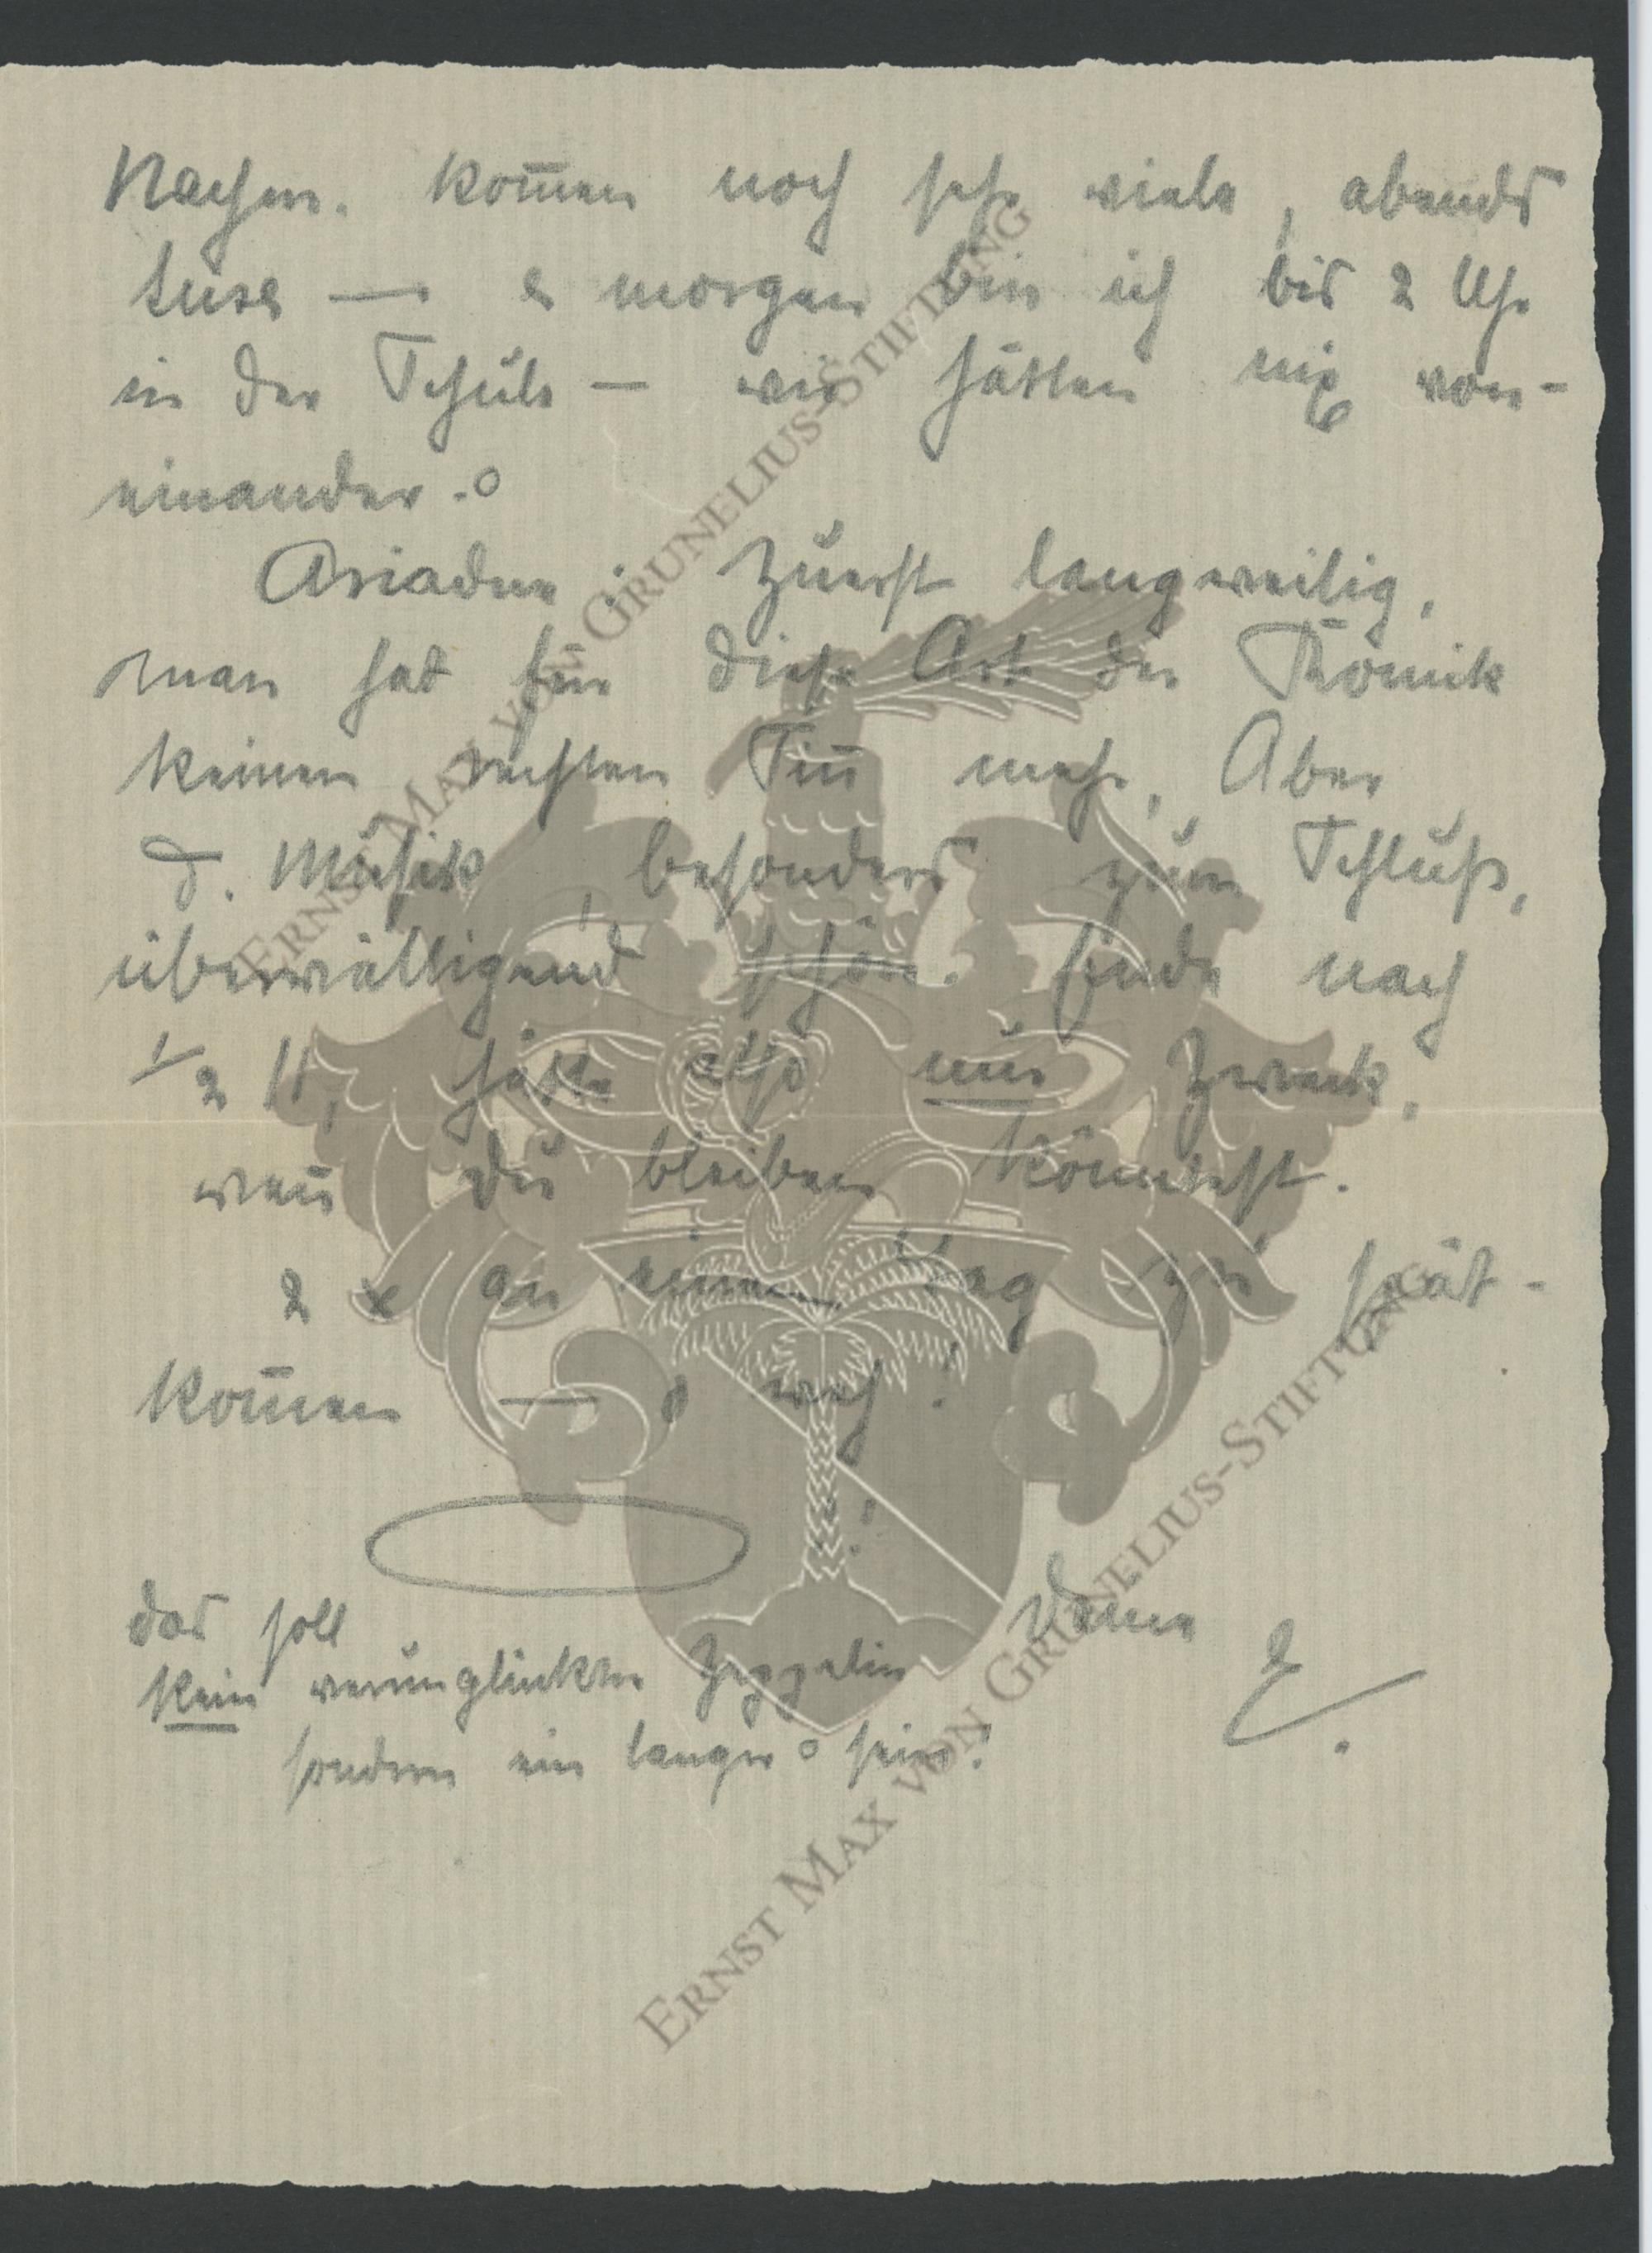 Nachm. kom̅en noch sehr viele, abends
Luise — & morgen bin ich bis 2 Uhr
in der Schule — wir hätten nix von-
einander. o
Ariadne: Zuerst langweilig,
man hat für diese Art der Komik
keinen rechten Sin̅ mehr, Aber
d. Musik, besonders zum Schluß,
überwältigend schön. Ende nach
1/2 11, hätte also nur Zweck,
wen̅ du bleiben könntest.
2 x an einem Tag zu spät-
kom̅en — o weh!
!
das soll
kein verunglückter Zeppelin
sondern ein langer o sein!
Deine
E.
ERNST MAX VON GRUNELIUS-STIFTUNG
ERNST MAX VON GRUNELIUS-STIFTUNG